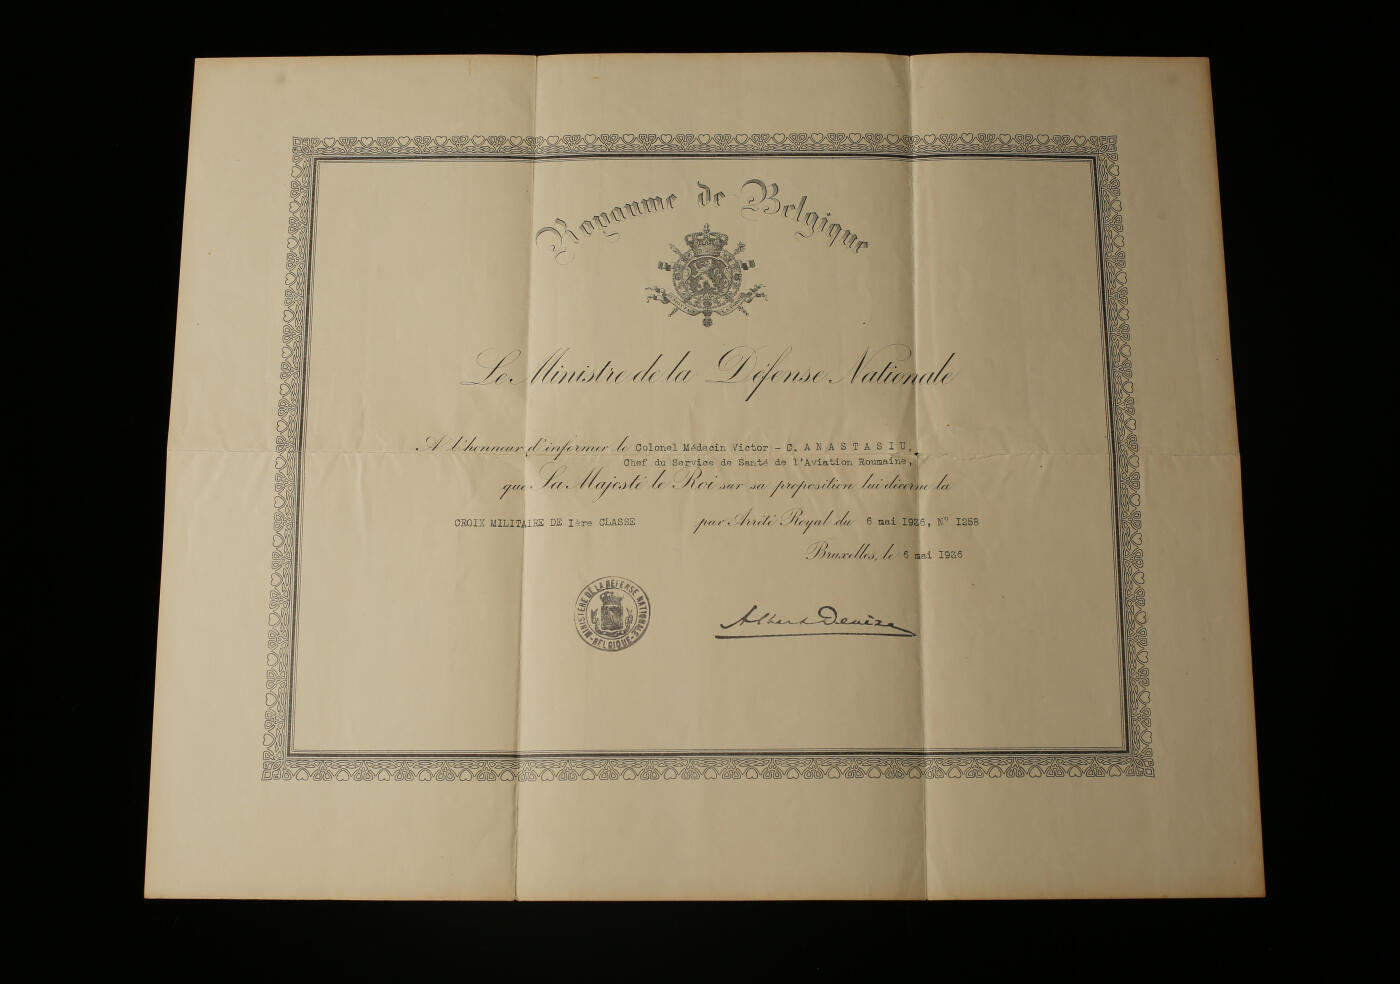 Royaume de Belgique
Le Ministre de la Défense Nationale
A l'honneur d'informer le Colonel Médecin Victor - C. ANASTASIU,
Chef du Service de Santé de l'Aviation Roumaine,
que Sa Majesté le Roi sur sa proposition lui décerne la
CROIX MILITAIRE DE Ière CLASSE par Arrêté Royal du 6 mai 1936, N° 1258
Bruxelles, le 6 mai 1936
MINISTÈRE DE LA DÉFENSE NATIONALE
BELGIQUE
Albert Devèze